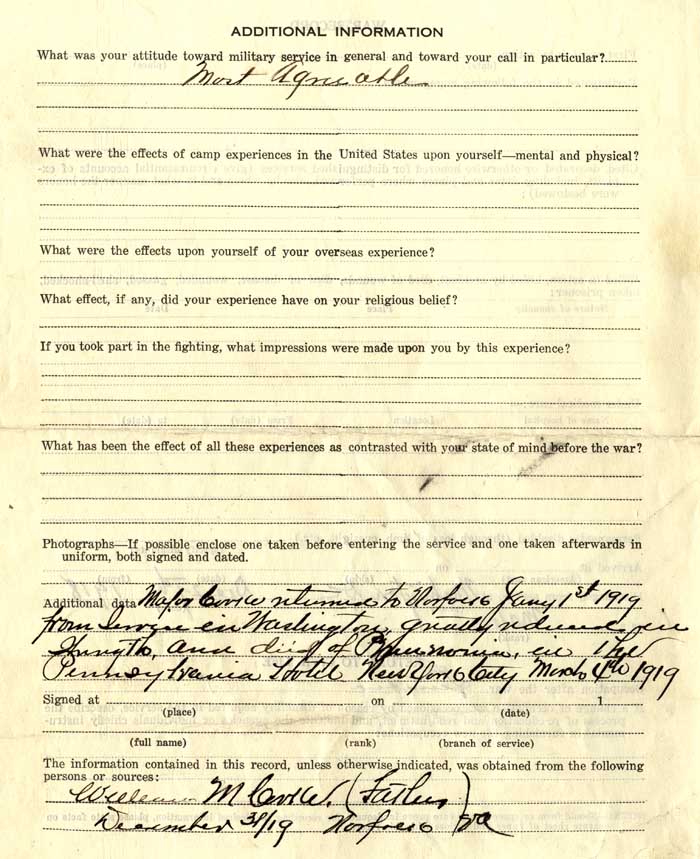 ADDITIONAL INFORMATION
What was your attitude toward military service in general and toward your call in particular?
Most Agreeable
What were the effects of camp experiences in the United States upon yourself—mental and physical?
What were the effects upon yourself of your overseas experience?
What effect, if any, did your experience have on your religious belief?
If you took part in the fighting, what impressions were made upon you by this experience?
What has been the effect of all these experiences as contrasted with your state of mind before the war?
Photographs—If possible enclose one taken before entering the service and one taken afterwards in
uniform, both signed and dated.
Additional data Major Cooke returned to Norfolk Jany 1st 1919
from Service in Washington, greatly reduced in
Strength, and died of Pneumonia, in The
Pennsylvania Hotel New York City March 4th 1919
Signed at on 1
(place) (date)
(full name) (rank) (branch of service)
The information contained in this record, unless otherwise indicated, was obtained from the following
persons or sources:
William M Cooke. (Father)
December 31/19 Norfolk Va